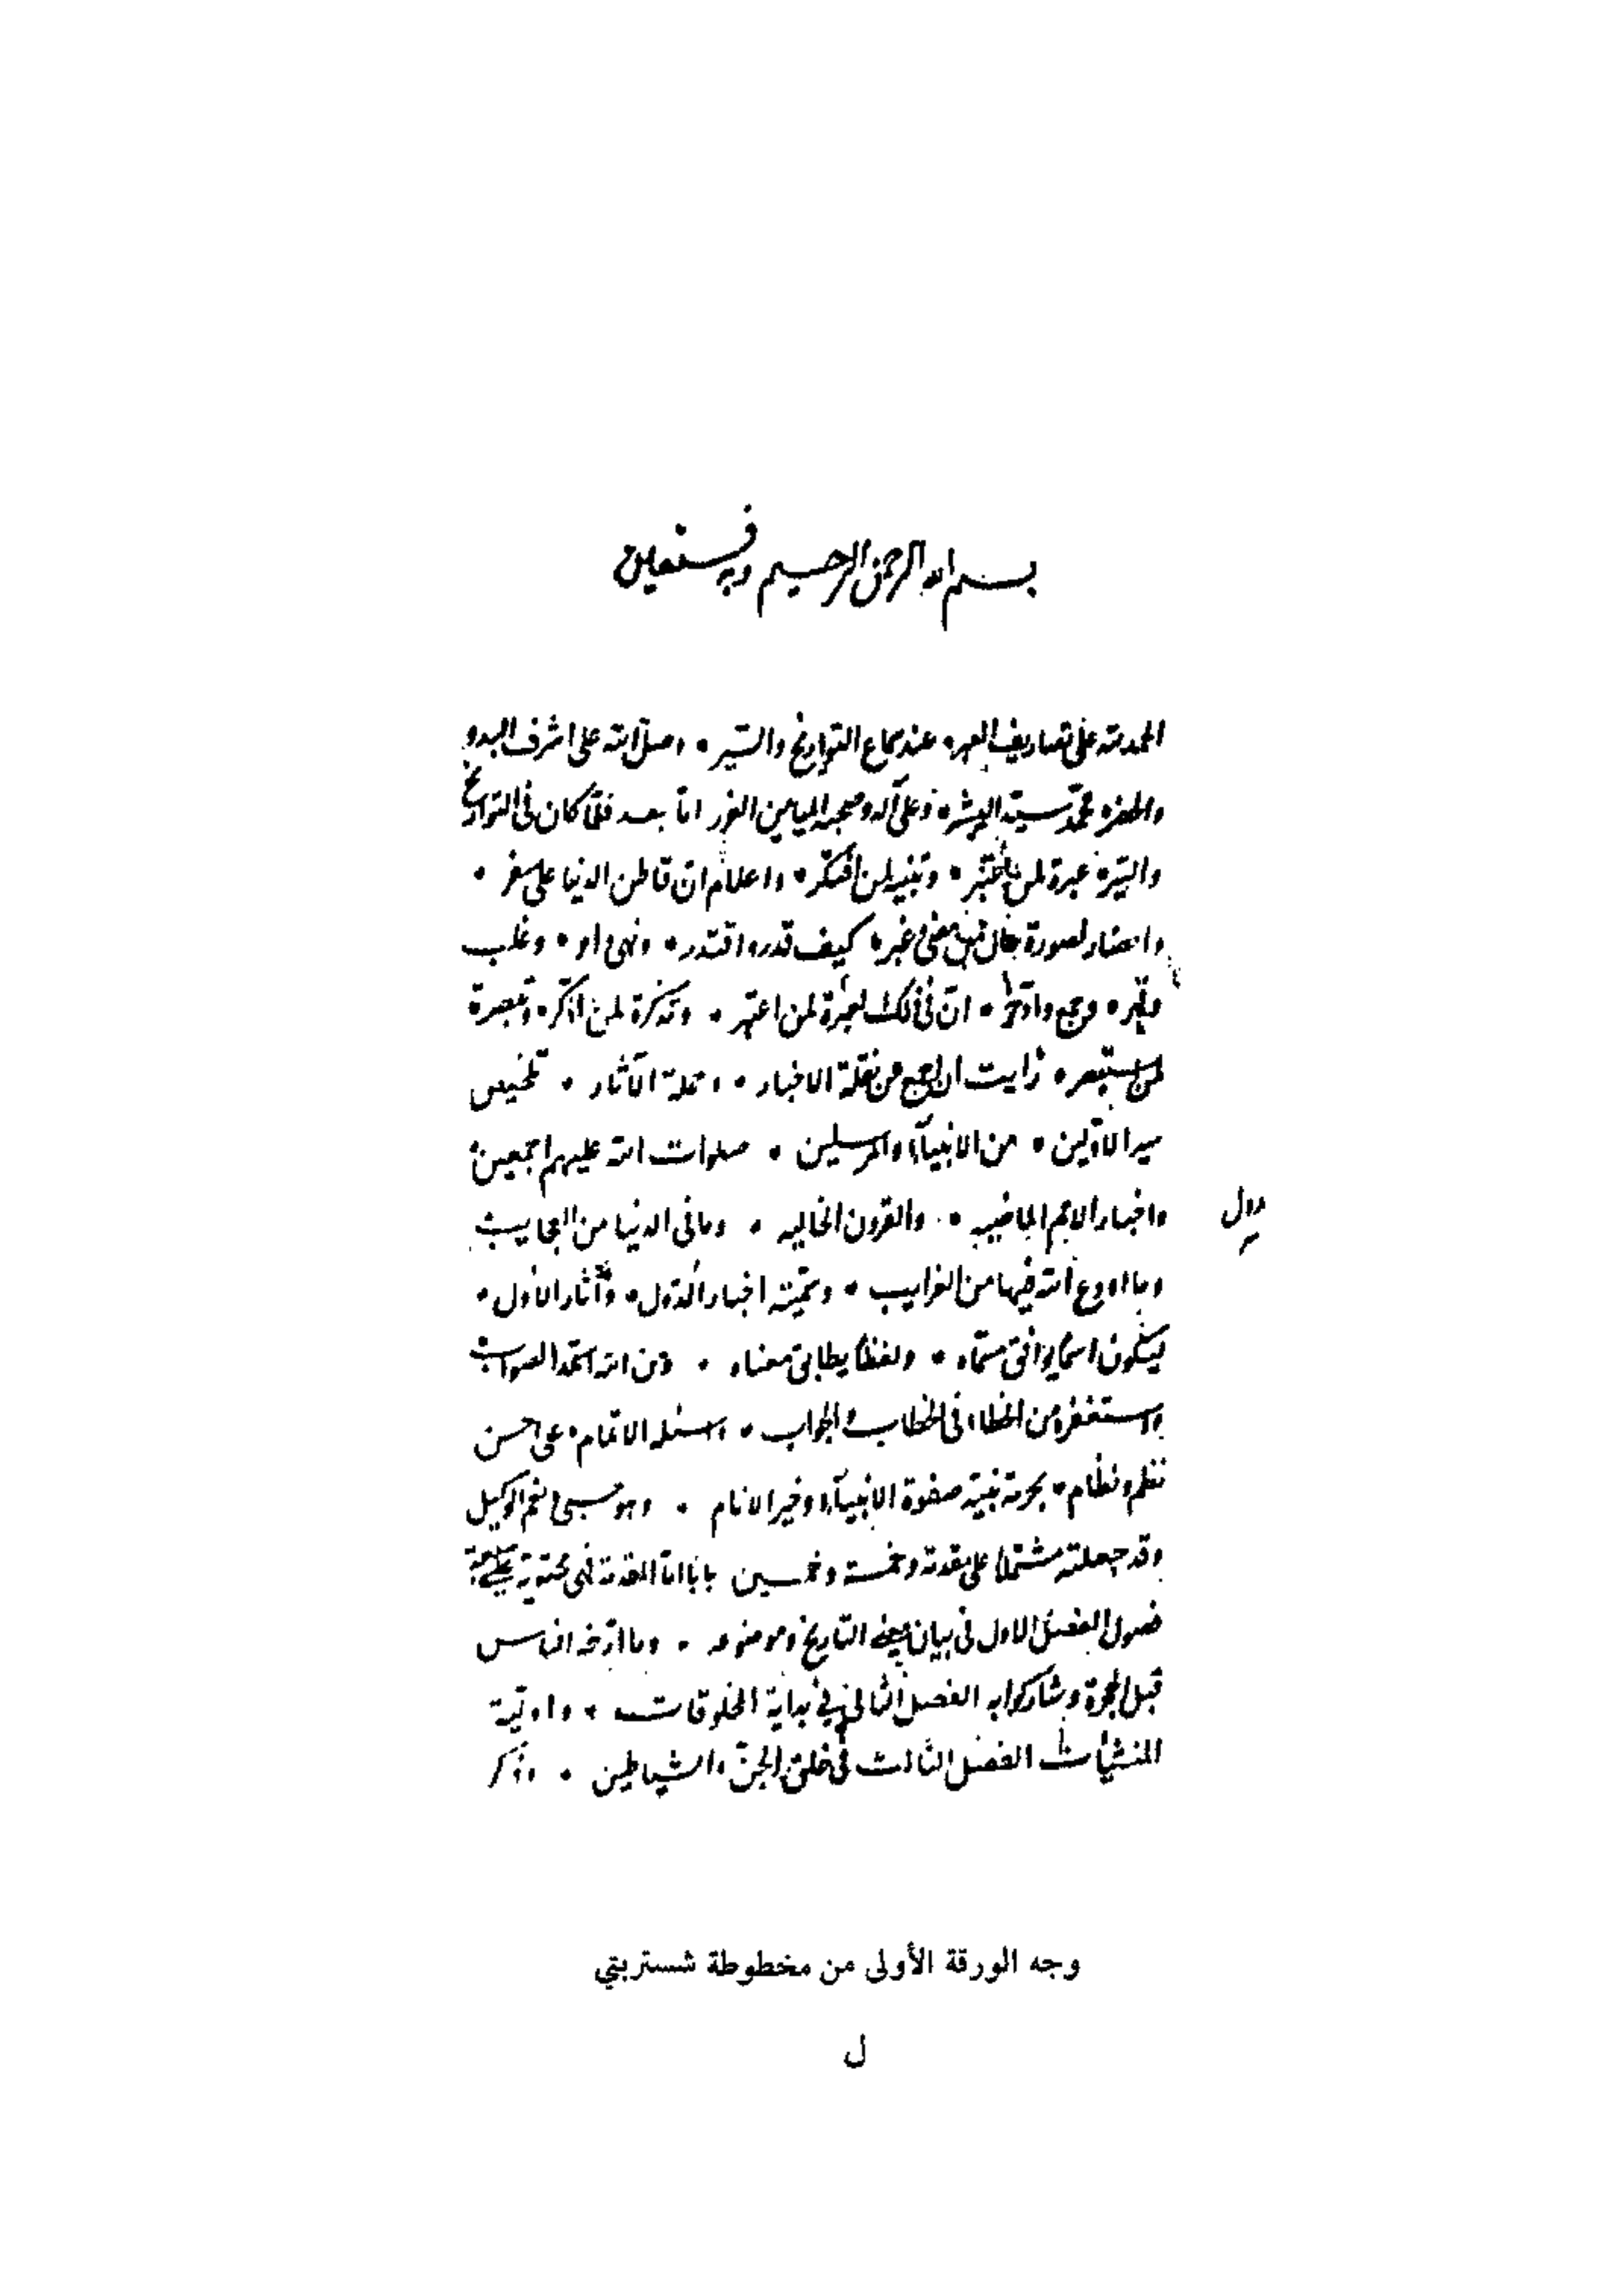 بسم الله الرحمن الرحيم وبه نستعين
الحمد لله على تصاريف العبر • عند سماع التواريخ والسير • وصلى الله على اشرف البدو
والحضر • محمد سيد البشر • وعلى آله وصحبه الميامين الغرر اما بعد فلما كان فى التواريخ
والسير • عبرة لمن • وتنبيه لمن افتكر • واعلام ان قاطن الدنيا على سفر •
واحضار لصورة حال من مضى وغبر • كيف قدر واقتدر • ونهى وامر • وغلب
وقهر • وجمع وادخر • ان فى ذلك لعبرة لمن اعتبر • وتذكرة لمن اذكر • وتبصرة
لمن استبصر • رايت ان اجمع من نقلة الاخبار • وحملة الآثار • تلخيص
سير الاولين • من الانبيآء والمرسلين • صلوات الله عليهم اجمعين •
واخبار الامم الماضيه • والقرون الخاليه • وما فى الدنيا من العجايب
وما اودع الله فيها من الغرايب • وسميته اخبار الدول • وآثار الاول •
ليكون اسما يوافق مسماه • ولفظا يطابق معناه • ومن الله استمد الصواب
واستغفره من الخطاء فى الخطاب والجواب • واسئله الاتمام • على احسن
نظم ونظام • بحرمة نبيه صفوة الانبيآء وخير الانام • وهو حسبى ونعم الوكيل
وقد جعلته مشتملا على مقدمة وخمسة وخمسين بابا اما المقدمة فهى محتوية على
فصول الفصل الاول فى بيان التاريخ وموضوعه • وما ارخه الناس
قبل الهجرة وشاركوا به الفصل الثانى فى بداية المخلوقات • واولية
المنشيأت الفصل الثالث فى خلق الجن والشياطين • وذكر
وجه الورقة الأولى من مخطوطة شستربتي
ل